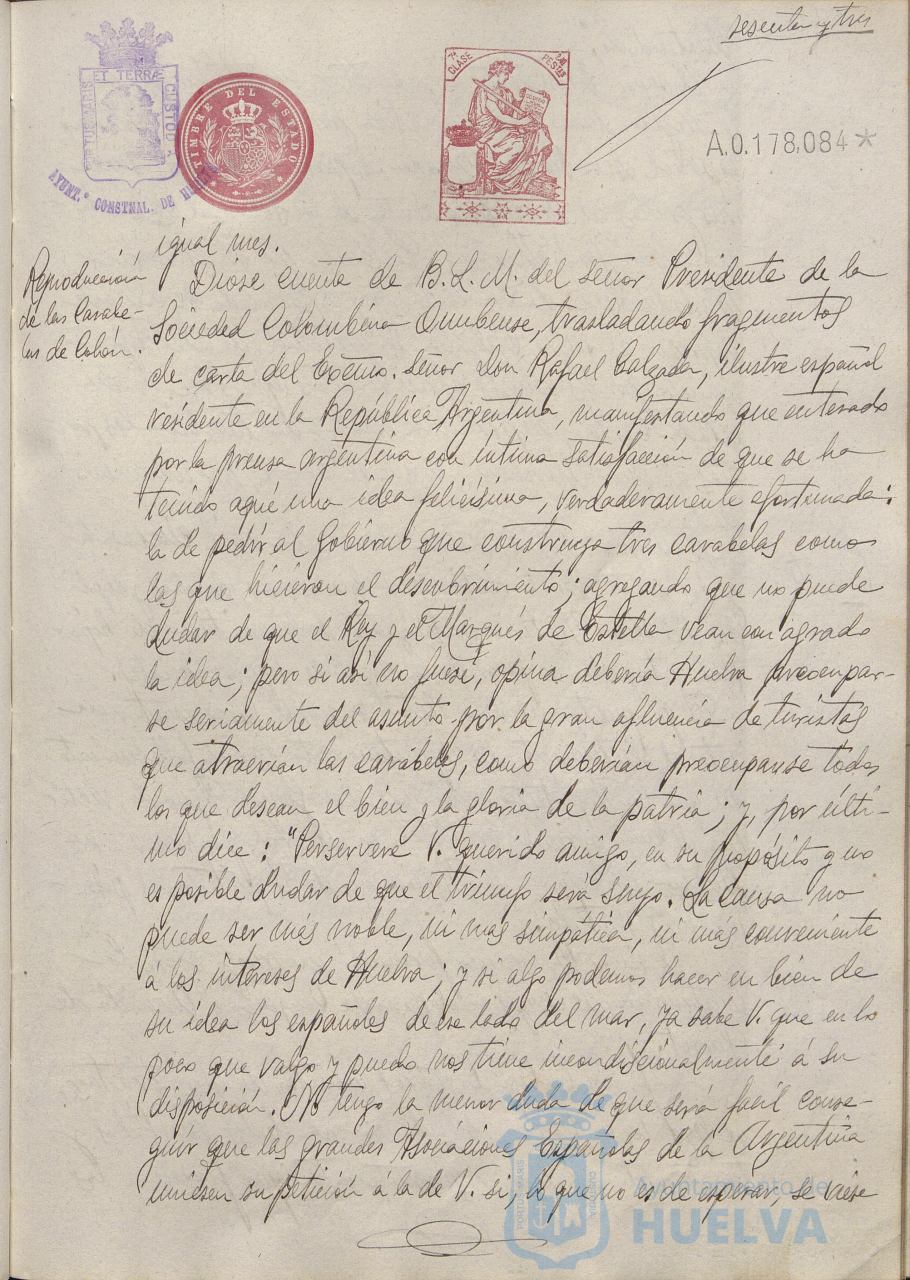 sesenta y tres
PORTUS MARIS ET TERRÆ CUSTODIA
AYUNT.º CONSTNAL. DE HUELVA
TIMBRE DEL ESTADO
7ª CLASE
PESETAS
A.0.178,084*
igual mes.
Reproducción
de las Carabe-
las de Colón.
Diose cuenta de B. L. M. del señor Presidente de la
Sociedad Colombina Onubense, trasladando fragmentos
de carta del Excmo. señor Don Rafael Calzada, ilustre español
residente en la República Argentina, manifestando que enterado
por la prensa argentina con íntima satisfacción de que se ha
tenido aquí una idea felicísima, verdaderamente afortunada:
la de pedir al Gobierno que construya tres carabelas como
las que hicieron el descubrimiento; agregando que no puede
dudar de que el Rey y el Marqués de Estella vean con agrado
la idea; pero si así no fuese, opina debería Huelva preocupar-
se seriamente del asunto por la gran afluencia de turistas
que atraerían las carabelas, como deberían preocuparse todos
los que desean el bien y la gloria de la patria; y, por últi-
mo dice: "Perservere V. querido amigo, en su propósito y no
es posible dudar de que el triunfo será suyo. La causa no
puede ser más noble, ni mas simpática, ni más conveniente
á los intereses de Huelva; y si algo podemos hacer en bien de
su idea los españoles de ese lado del mar, ya sabe V. que en lo
poco que valgo y puedo nos tiene incondicionalmente á su
disposición. No tengo la menor duda de que será facil conse-
guir que las grandes Asociaciones Españolas de la Argentina
uniesen su petición á la de V. si, lo que no es de esperar, se viese
Ayuntamiento de
HUELVA